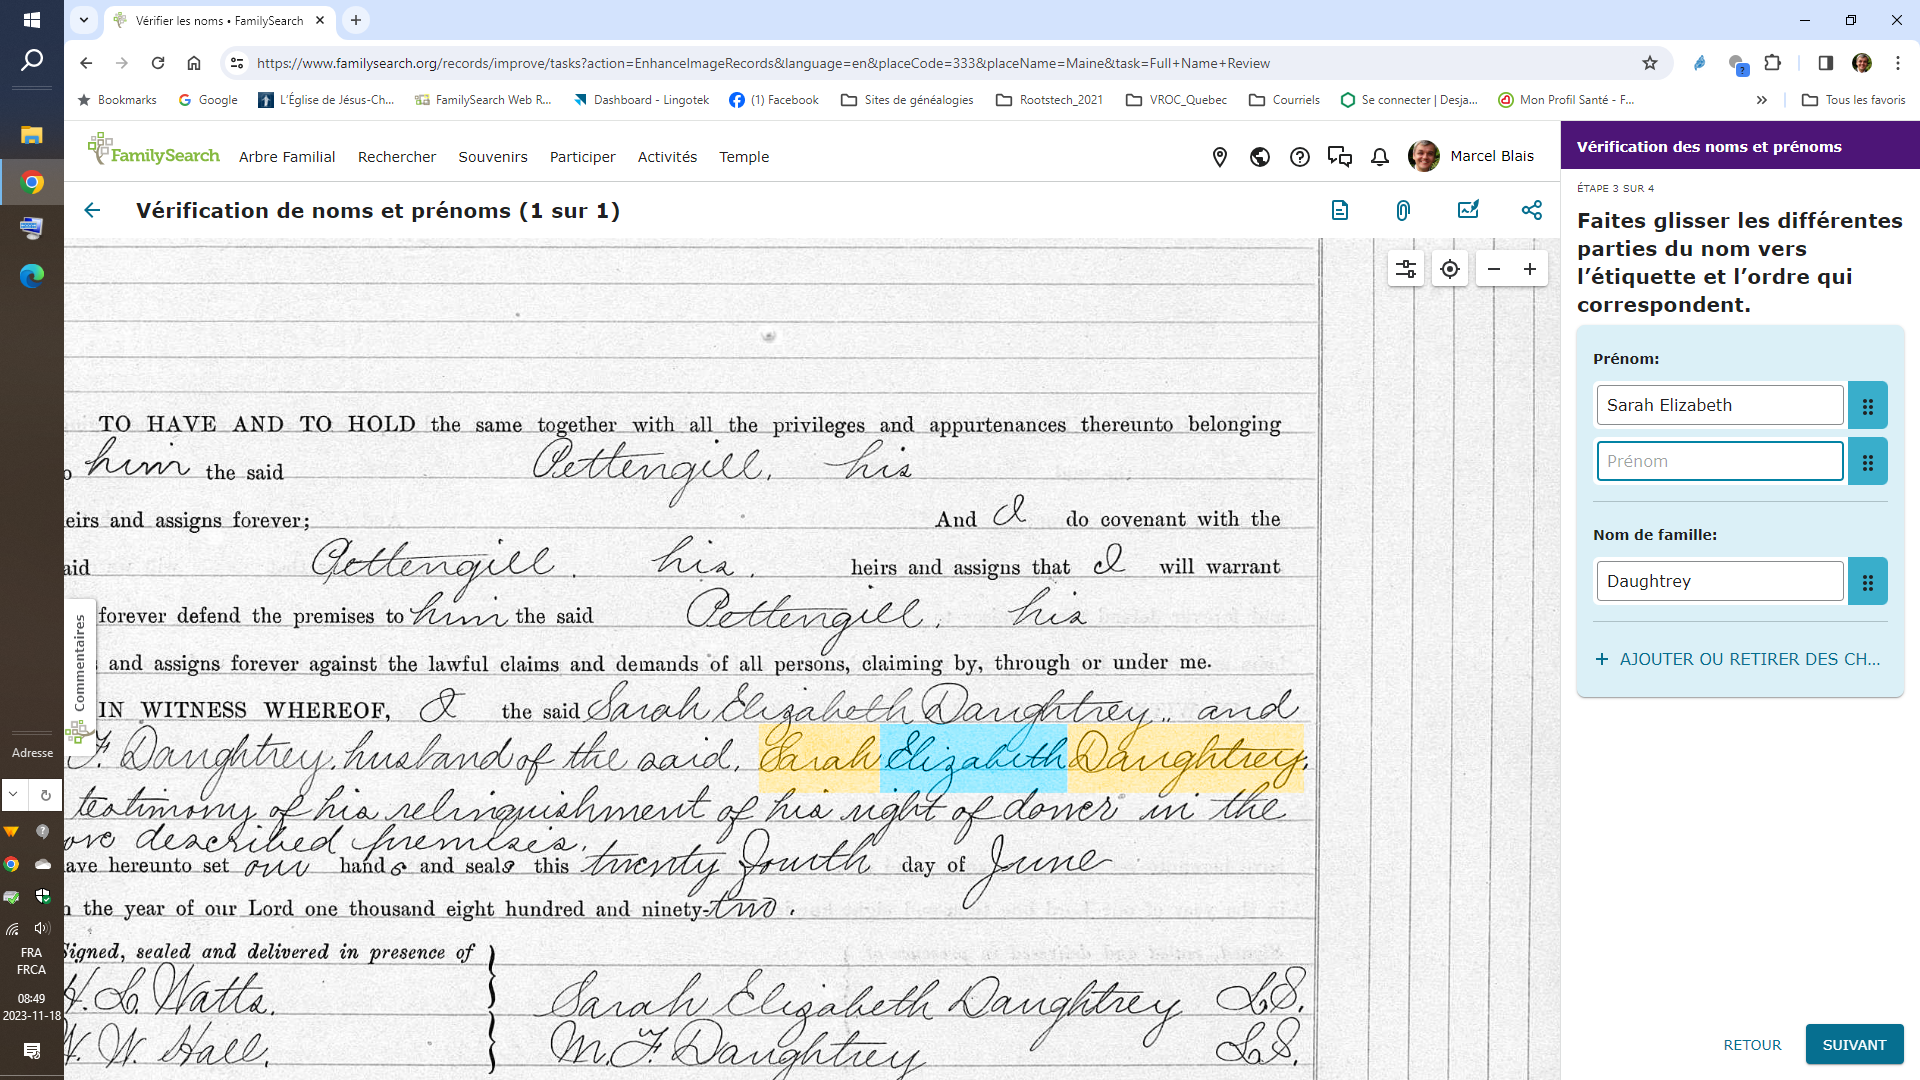 Vérifier les noms • FamilySearch
https://www.familysearch.org/records/improve/tasks?action=EnhanceImageRecords&language=en&placeCode=333&placeName=Maine&task=Full+Name+Review
Bookmarks
Google
L'Église de Jésus-Ch...
FamilySearch Web R...
Dashboard - Lingotek
(1) Facebook
Sites de généalogies
Rootstech_2021
VROC_Quebec
Courriels
Se connecter | Desja...
Mon Profil Santé - F...
»
Tous les favoris
FamilySearch
Arbre Familial
Rechercher
Souvenirs
Participer
Activités
Temple
Marcel Blais
Vérification de noms et prénoms (1 sur 1)
TO HAVE AND TO HOLD the same together with all the privileges and appurtenances thereunto belonging
o him the said Pettengill, his
eirs and assigns forever; And I do covenant with the
aid Pettengill, his, heirs and assigns that I will warrant
forever defend the premises to him the said Pettengill, his
s and assigns forever against the lawful claims and demands of all persons, claiming by, through or under me.
IN WITNESS WHEREOF, I the said Sarah Elizabeth Daughtrey, and
F. Daughtrey, husband of the said, Sarah Elizabeth Daughtrey,
testimony of his relinquishment of his right of dower in the
ove described premises,
ave hereunto set our hands and seals this twenty fourth day of June
n the year of our Lord one thousand eight hundred and ninety-two.
Signed, sealed and delivered in presence of
H. L. Watts.
W. W. Hall.
Sarah Elizabeth Daughtrey L.S.
M. F. Daughtrey L.S.
Commentaires
Vérification des noms et prénoms
ÉTAPE 3 SUR 4
Faites glisser les différentes
parties du nom vers
l’étiquette et l’ordre qui
correspondent.
Prénom:
Sarah Elizabeth
Prénom
Nom de famille:
Daughtrey
+ AJOUTER OU RETIRER DES CH...
RETOUR
SUIVANT
Adresse
FRA
FRCA
08:49
2023-11-18